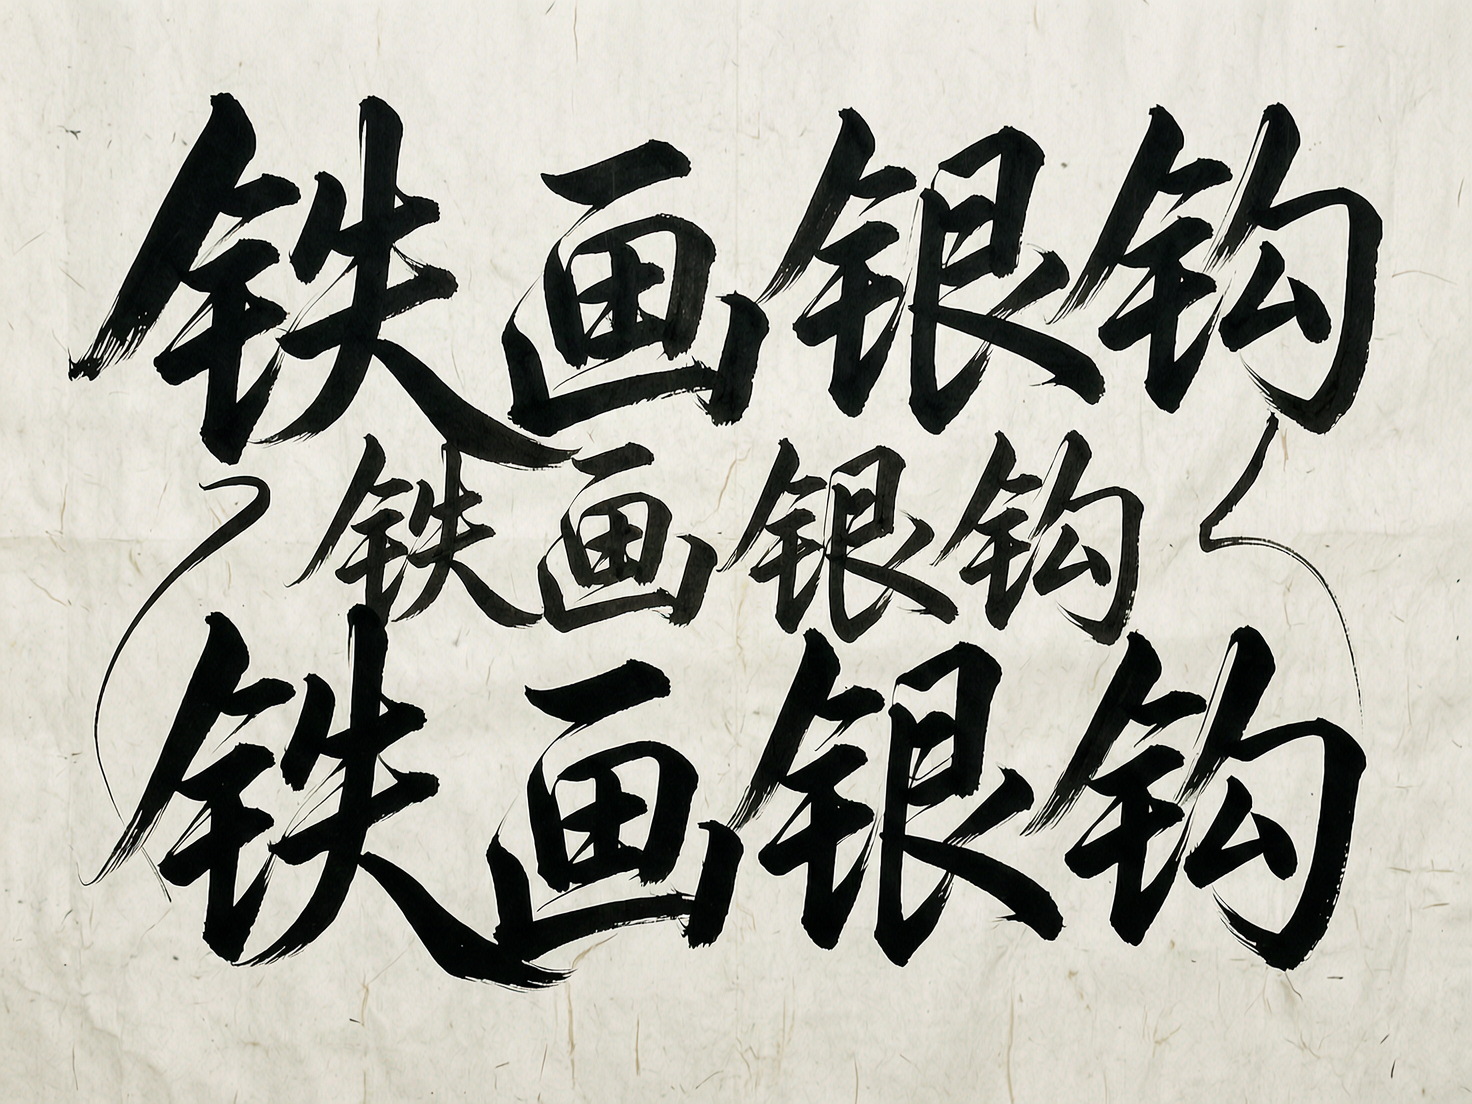 铁画银钩
铁画银钩
铁画银钩